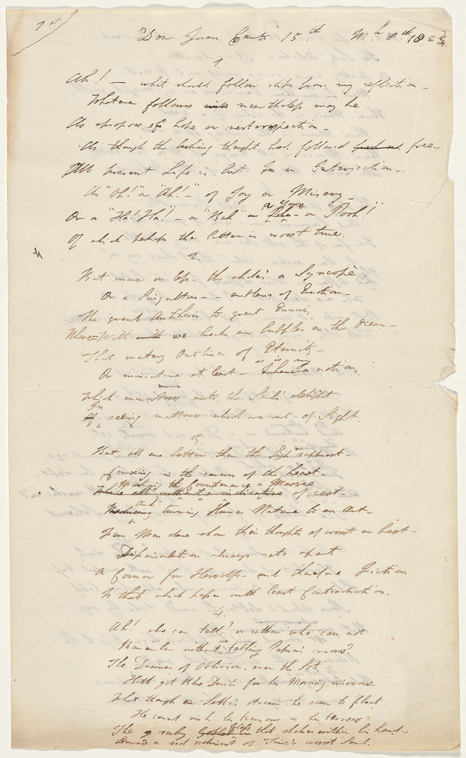 1st
Don Juan Canto 15th Mh 8th 1823
1
Ah! — what should follow slips from my reflection —
Whatever follows ne'ertheless may be
As apropos of hope or retrospection —
As though the lurking thought had followed free —
All present Life is but an Interjection —
An "Oh!" or "Ah!" — of Joy or Misery —
Or a "Ha! Ha!" — or "Bah" — a Yawn — or "Pooh!"
Of which perhaps the latter is most true.
2.
But more or less the whole's a Syncopé
Or a Singultus — emblems of Emotion —
The grand Antithesis to great Ennui,
Wherewith we break our bubbles on the Ocean —
That watery Outline of Eternity —
Or miniature at least — as is my notion,
Which ministers unto the Soul's delight
In seeing matters which are out of Sight.
3.
But all are better than the Sigh supprest
Corroding in the cavern of the heart
Making the Countenance a Masque
of rest —
And turning Human Nature to an Art —
Few Men dare show their thoughts of worst or best —
Dissimulation always sets apart
A Corner for Herself — and therefore Fiction
Is that which passes with least Contradiction.
4
Ah! who can tell? or rather who can not
Remember without telling Passion's errors?
The Drainer of Oblivion, even the Sot
Hath got blue Devils for his Morning mirrors
What though on Lethe's stream he seem to float
He cannot sink his tremors or his terrors
The ruby glass that shakes within his hand
Leaves a sad sediment of Time's worst Sand.